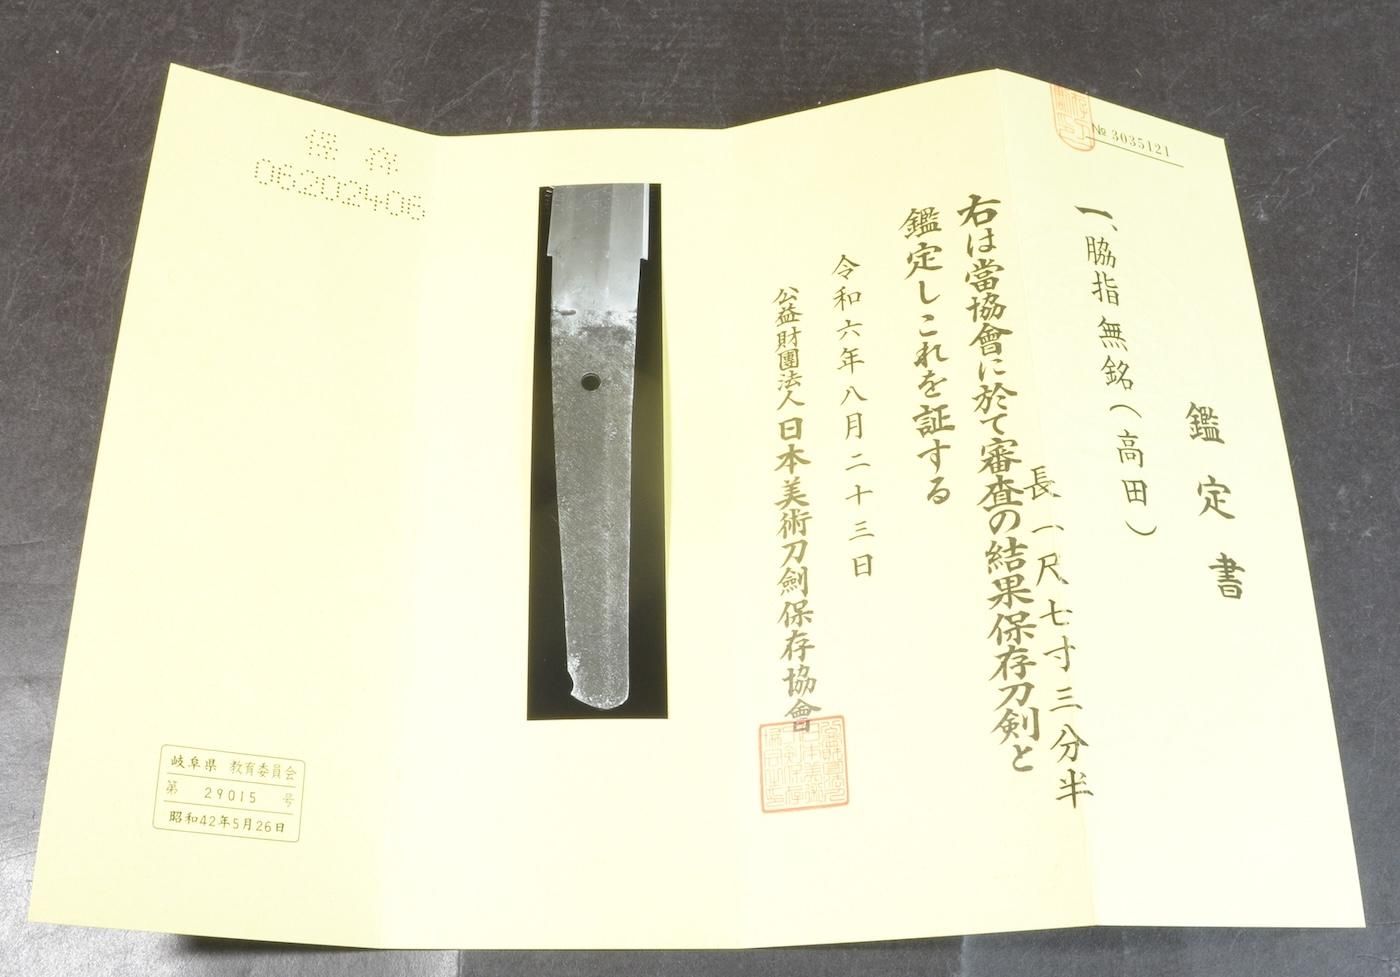 № 3035121
鑑定書
一、脇指無銘(高田)
長一尺七寸三分半
右は當協會に於て審査の結果保存刀剣と
鑑定しこれを証する
令和六年八月二十三日
公益財團法人日本美術刀劍保存協會
保存
06202406
岐阜県 教育委員会
第 29015 号
昭和42年5月26日